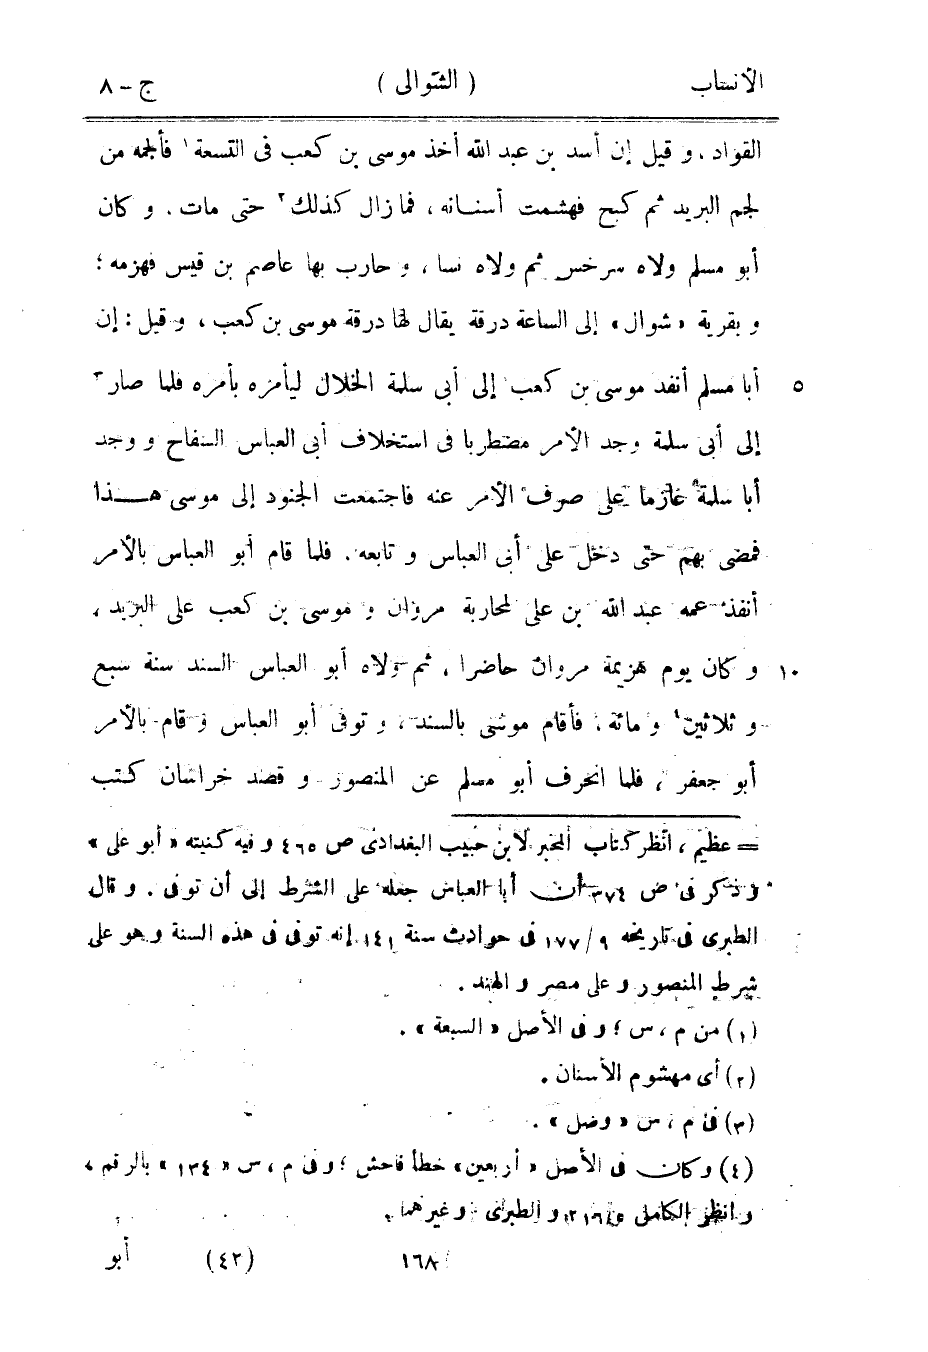 الأنساب ( الشوالى ) ج - ٨
القواد ، و قيل إن أسد بن عبد الله أخذ موسى بن كعب فى التسعة ١ فألجمه من
لجم البريد ثم كبح فهشمت أسنانه ، فما زال كذلك ٢ حتى مات . و كان
أبو مسلم ولاه سرخس ثم ولاه نسا ، و حارب بها عاصم بن قيس فهزمه ؛
و بقرية « شوال » إلى الساعة درقة يقال لها درقة موسى بن كعب ، و قيل : إن
٥ أبا مسلم أنفد موسى بن كعب إلى أبى سلمة الخلال ليأمره بأمره فلما صار ٣
إلى أبى سلمة وجد الأمر مضطربا فى استخلاف أبى العباس السفاح و وجد
أبا سلمة عازما على صرف الأمر عنه فاجتمعت الجنود إلى موسى هذا
فمضى بهم حتى دخل على أبى العباس و تابعه . فلما قام أبو العباس بالأمر
أنفذ عمه عبد الله بن على لمحاربة مروان و موسى بن كعب على البريد ،
١٠ و كان يوم هزيمة مروان حاضرا ، ثم ولاه أبو العباس السند سنة سبع
و ثلاثين ٤ و مائة ، فأقام موسى بالسند ، و توفى أبو العباس و قام بالأمر
أبو جعفر ، فلما انحرف أبو مسلم عن المنصور و قصد خراسان كتب
= عظيم ، انظر كتاب المحبر لابن حبيب البغدادى ص ٤٦٥ و فيه كنيته « أبو على »
و ذكر فى ص ٣٧٤ أن أبا العباس جعله على الشرط إلى أن توفى . و قال
الطبرى فى تاريخه ٩ / ١٧٧ فى حوادث سنة ١٤١ إنه توفى فى هذه السنة و هو على
شرط المنصور و على مصر و الهند .
(١) من م ، س ؛ و فى الأصل « السبعة » .
(٢) أى مهشوم الأسنان .
(٣) فى م ، س « وصل » .
(٤) و كان فى الأصل « أربعين » خطأ فاحش ؛ و فى م ، س « ١٣٤ » بالرقم ،
و انظر الكامل و الطبرى و غيرهما .
١٦٨ (٤٢) أبو